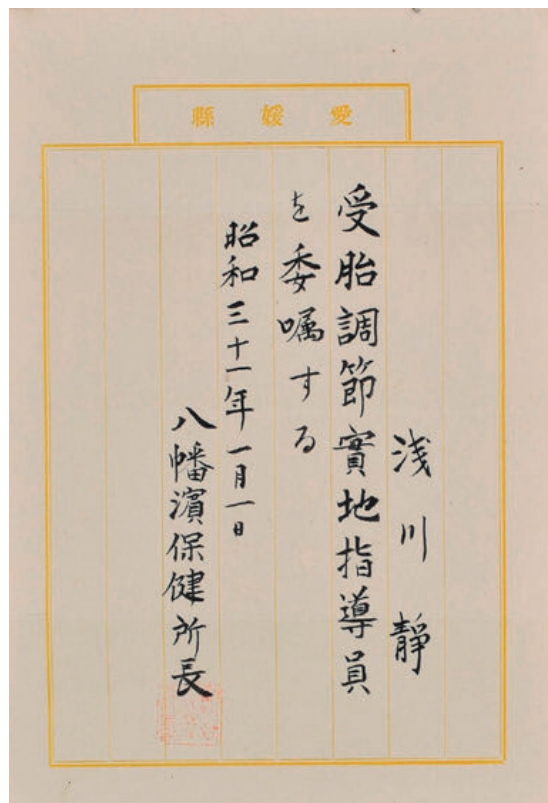 愛媛縣
浅川靜
受胎調節實地指導員
を委嘱する
昭和三十一年一月一日
八幡濱保健所長